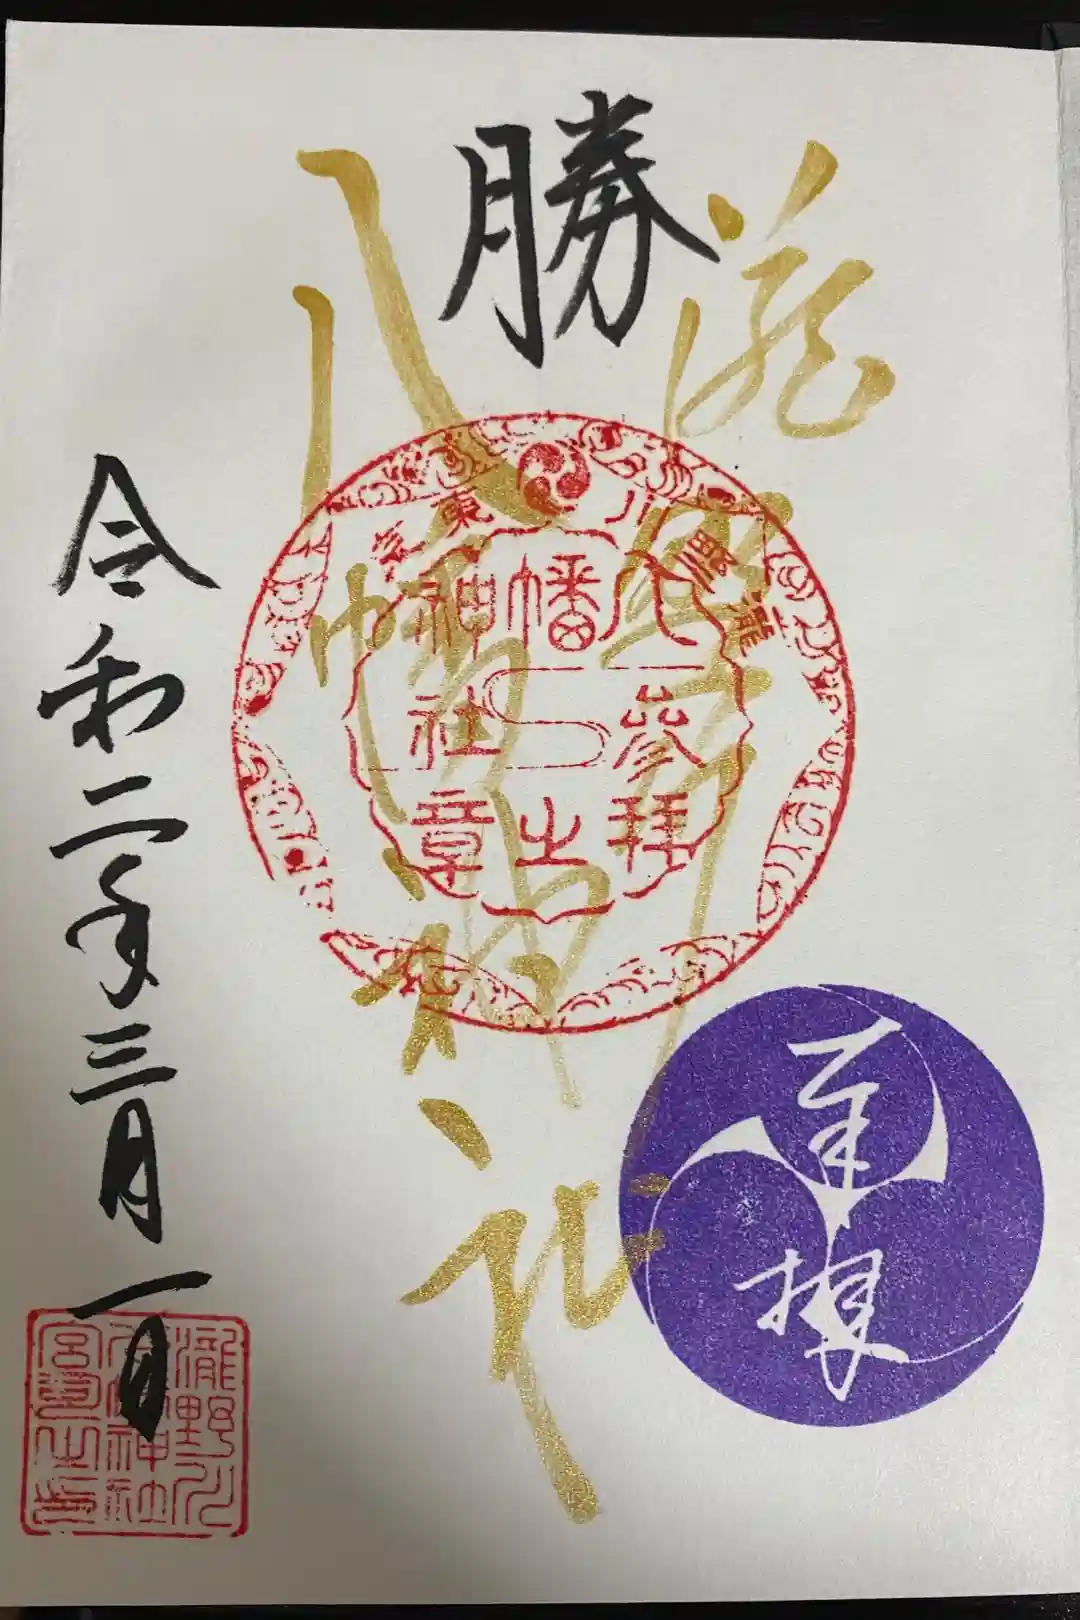 勝
瀧野川
八幡神社
東京
瀧野川
八幡神社
参拜之章
奉拝
令和二年三月一日
瀧野川
八幡神社
宮司之印